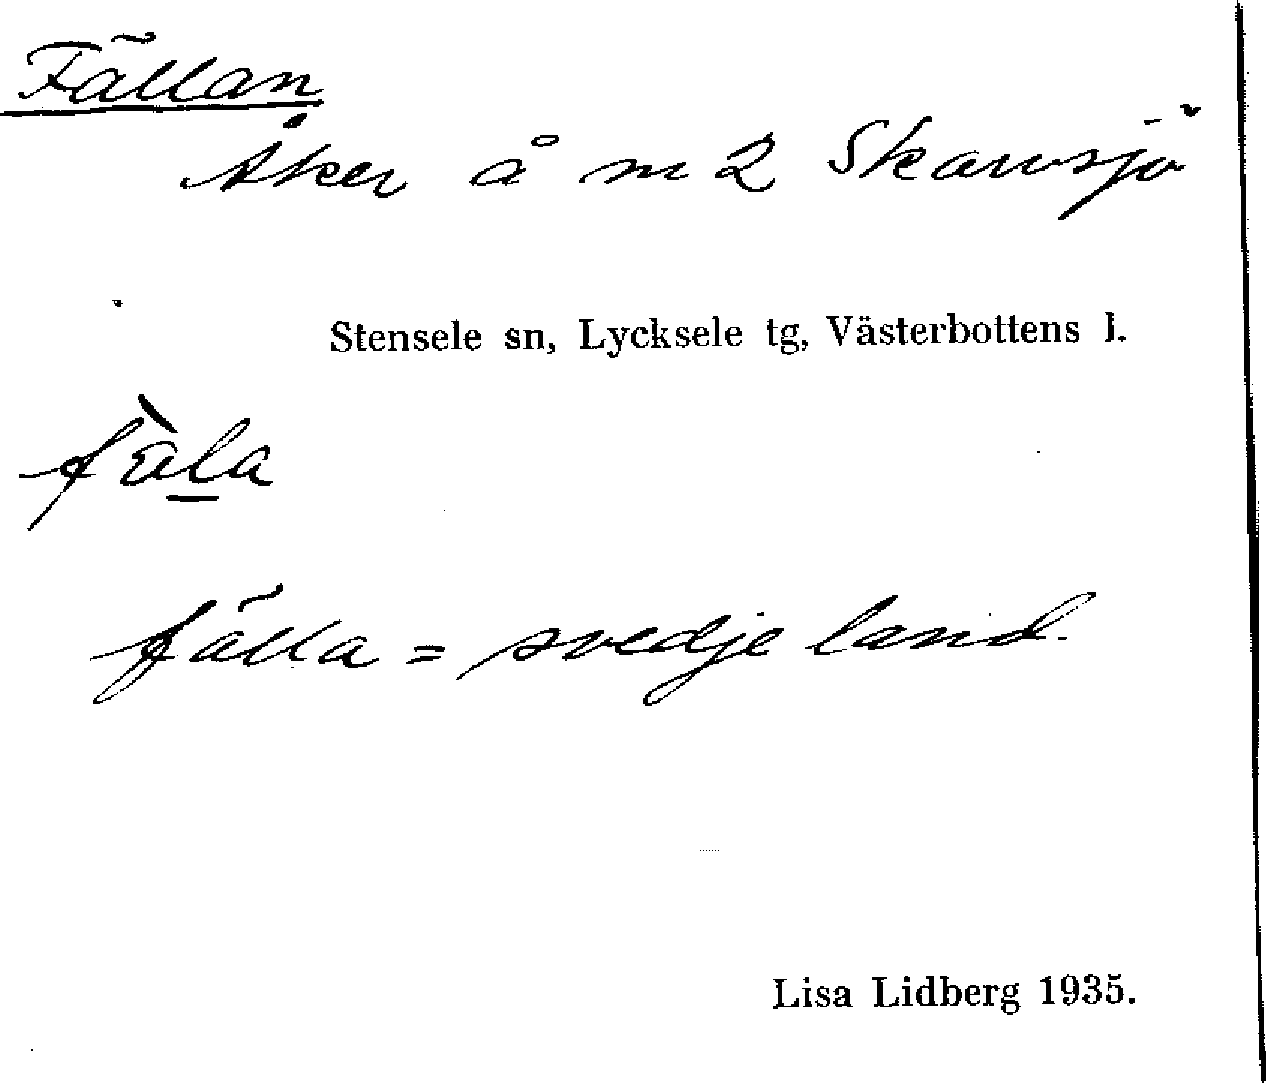 Fällan
Åker å m 2 Skarvsjö
Stensele sn, Lycksele tg, Västerbottens l.
fàla
fälla = svedjeland.
Lisa Lidberg 1935.